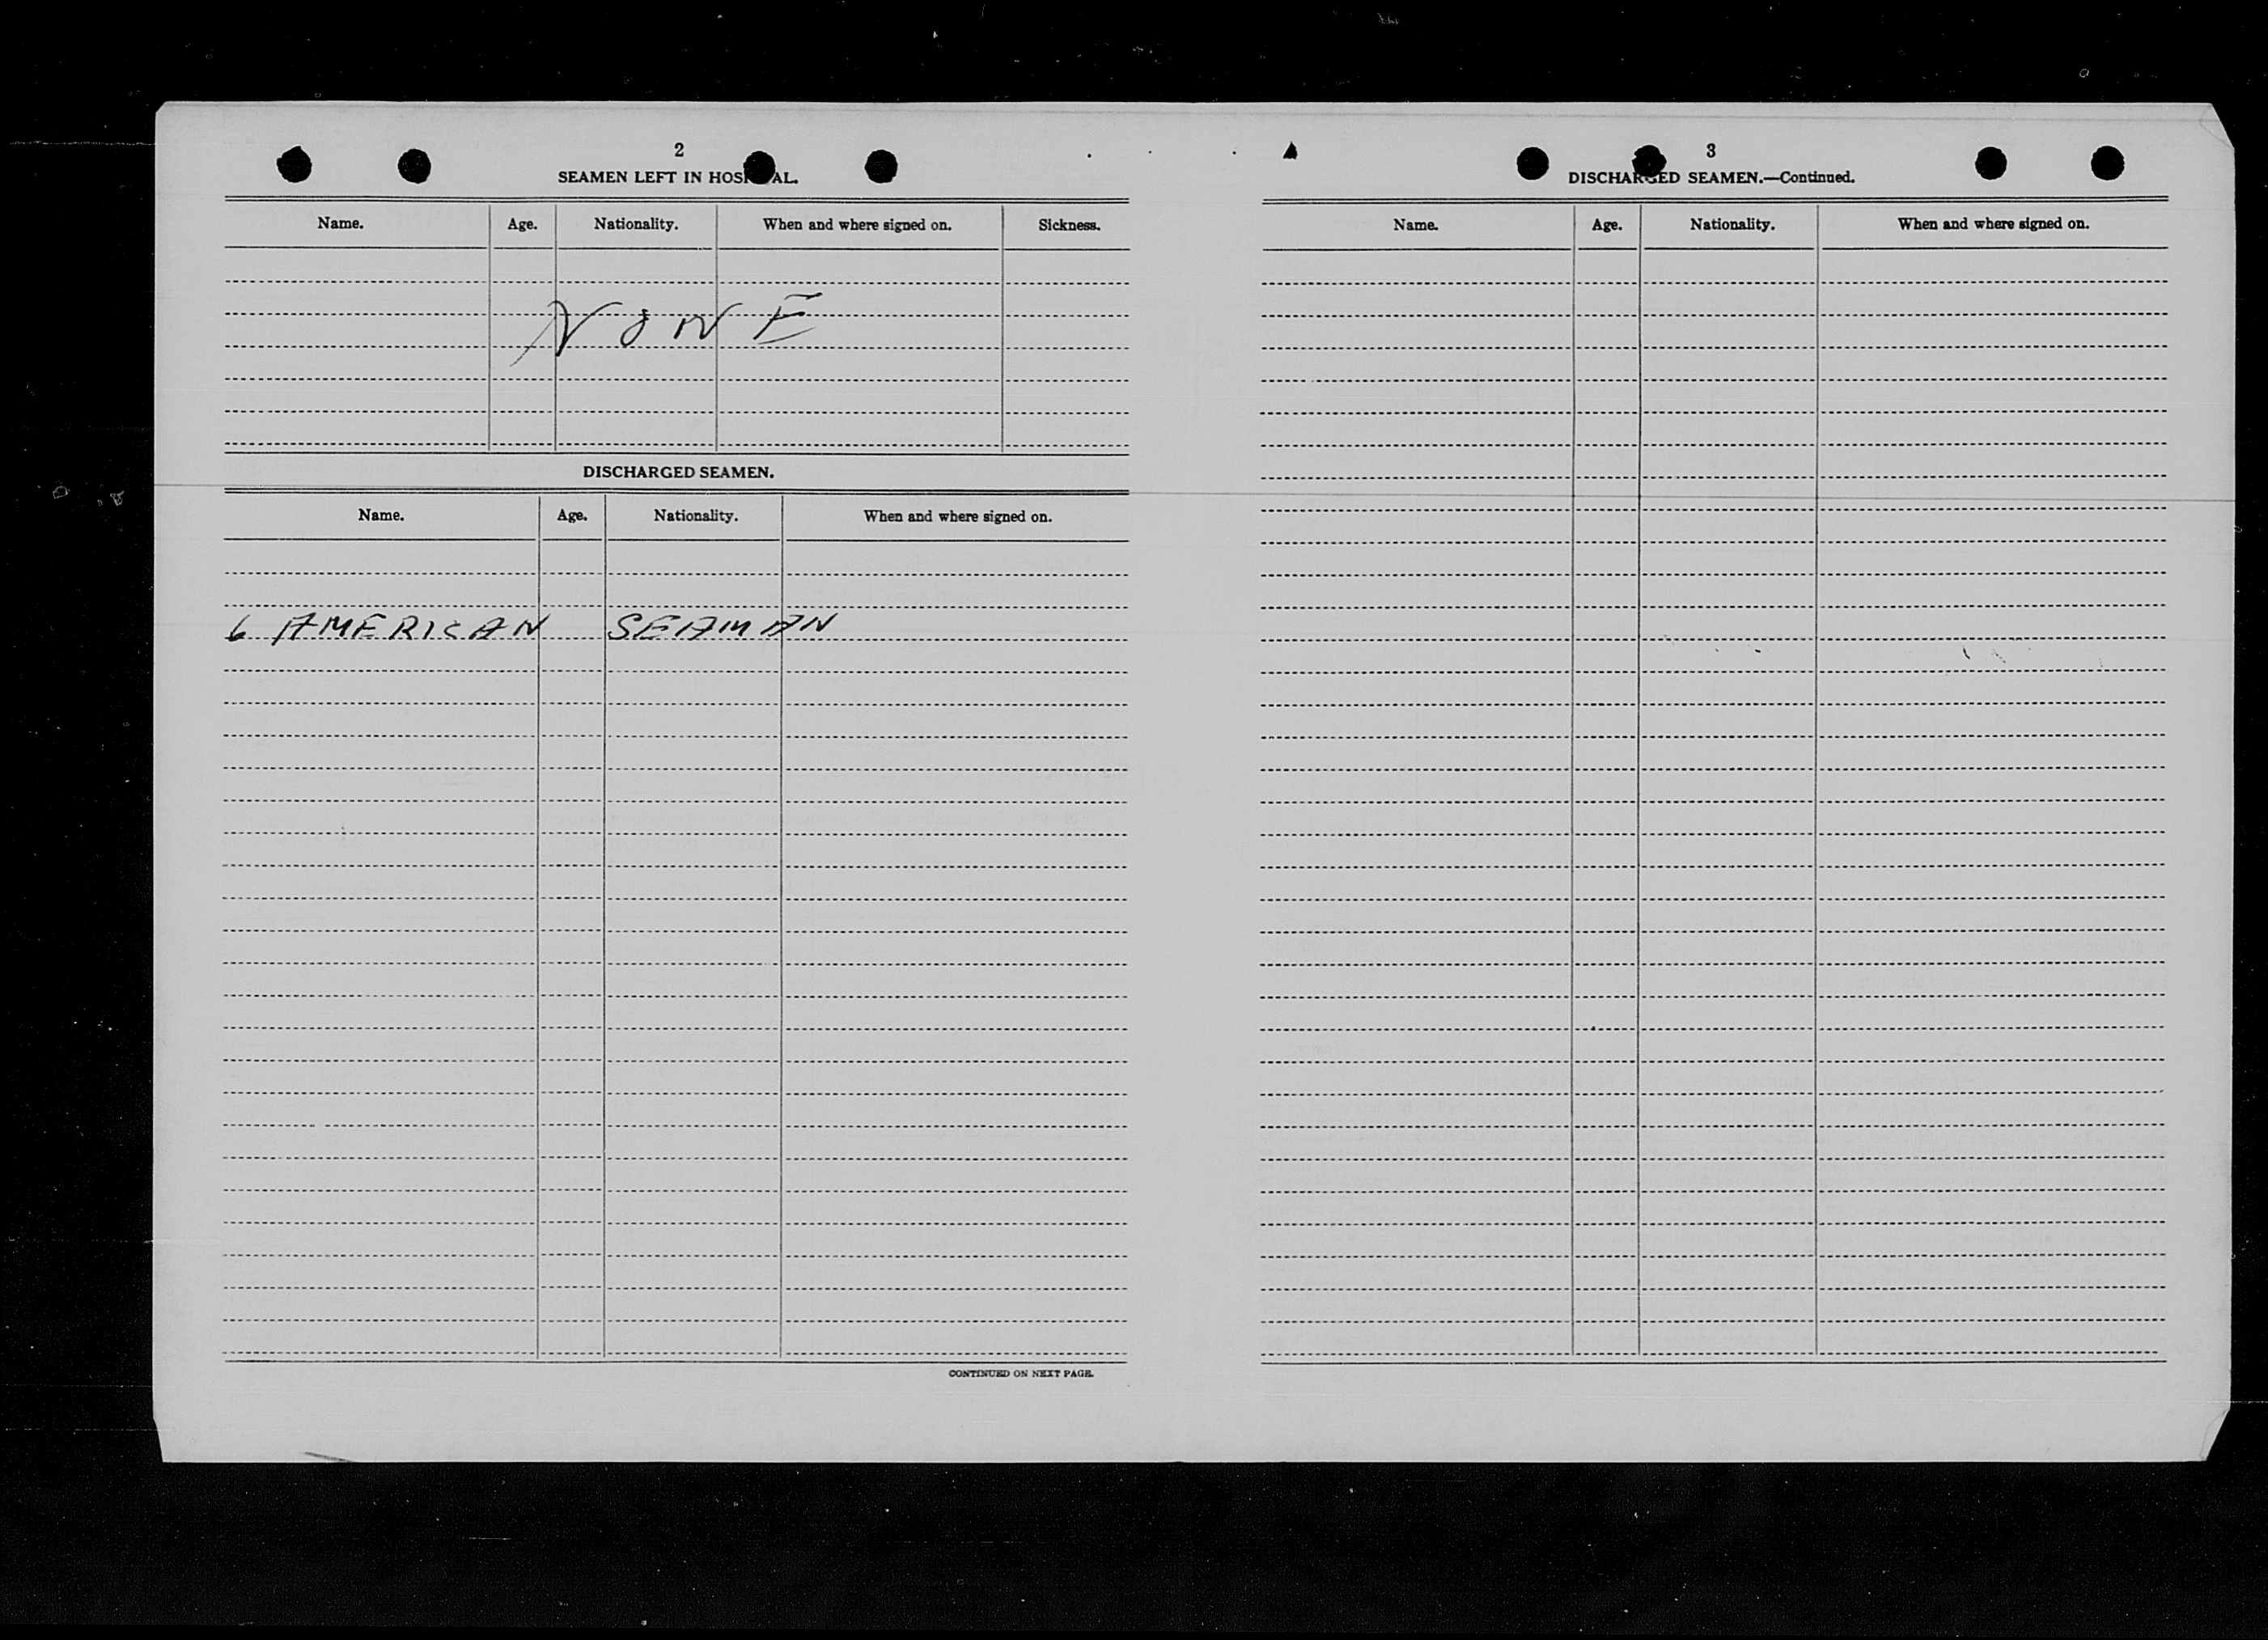 2
SEAMEN LEFT IN HOSPITAL.
Name. Age. Nationality. When and where signed on. Sickness.
NONE
DISCHARGED SEAMEN.
Name. Age. Nationality. When and where signed on.
6 AMERICAN SEAMAN
CONTINUED ON NEXT PAGE.
3
DISCHARGED SEAMEN.—Continued.
Name. Age. Nationality. When and where signed on.